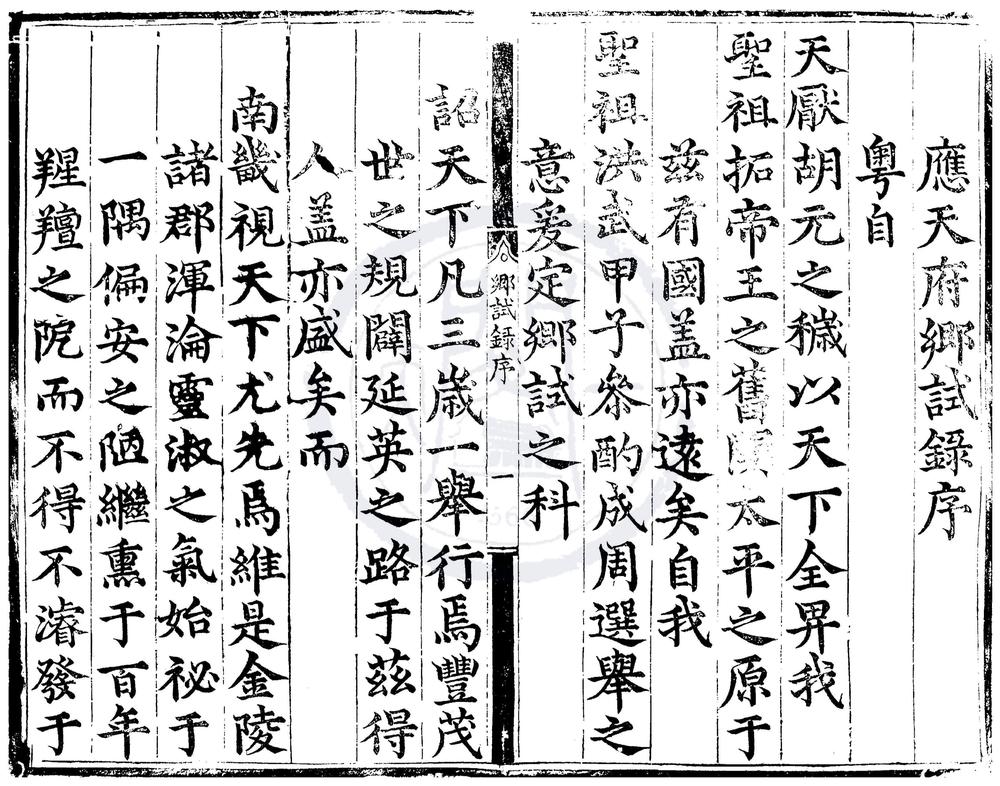 應天府鄉試錄序
粵自
天厭胡元之穢以天下全畀我
聖祖拓帝王之舊開太平之原于
茲有國盖亦遠矣自我
聖祖洪武甲子叅酌成周選舉之
意爰定鄉試之科
鄉試錄序
一
詔天下凡三歲一舉行焉豐茂
世之規闢延英之路于茲得
人盖亦盛矣而
南畿視天下尤先焉維是金陵
諸郡渾淪靈淑之氣始祕于
一隅偏安之陋繼熏于百年
羶之阨而不得不濬發于